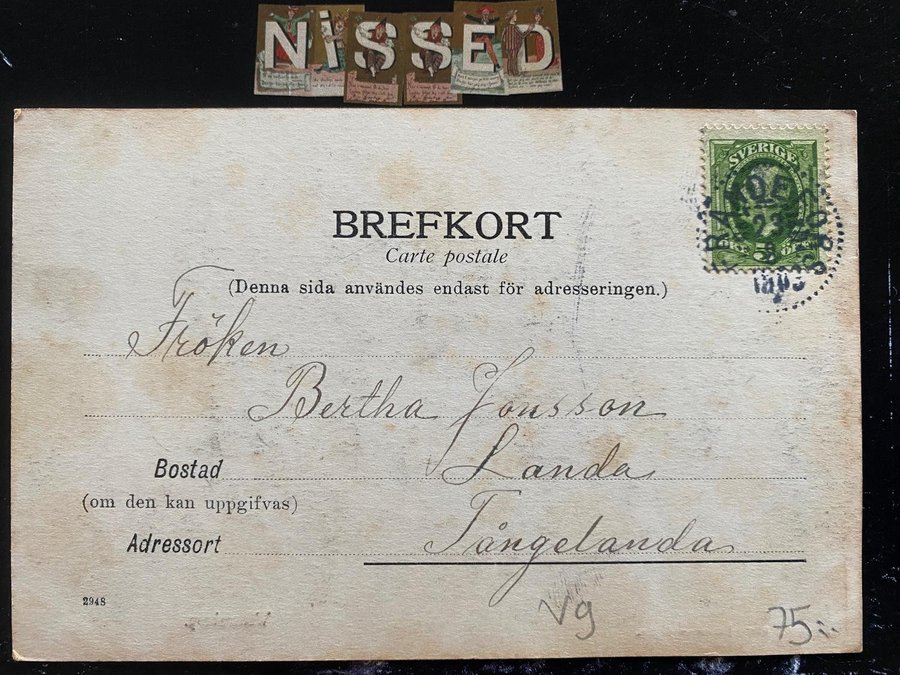 NISSED
BREFKORT
Carte postale
(Denna sida användes endast för adresseringen.)
SVERIGE
23
8
1903
Fröken
Bertha Jonsson
Bostad Landa
(om den kan uppgifvas)
Adressort Tångelanda
2948
Vg
75:-